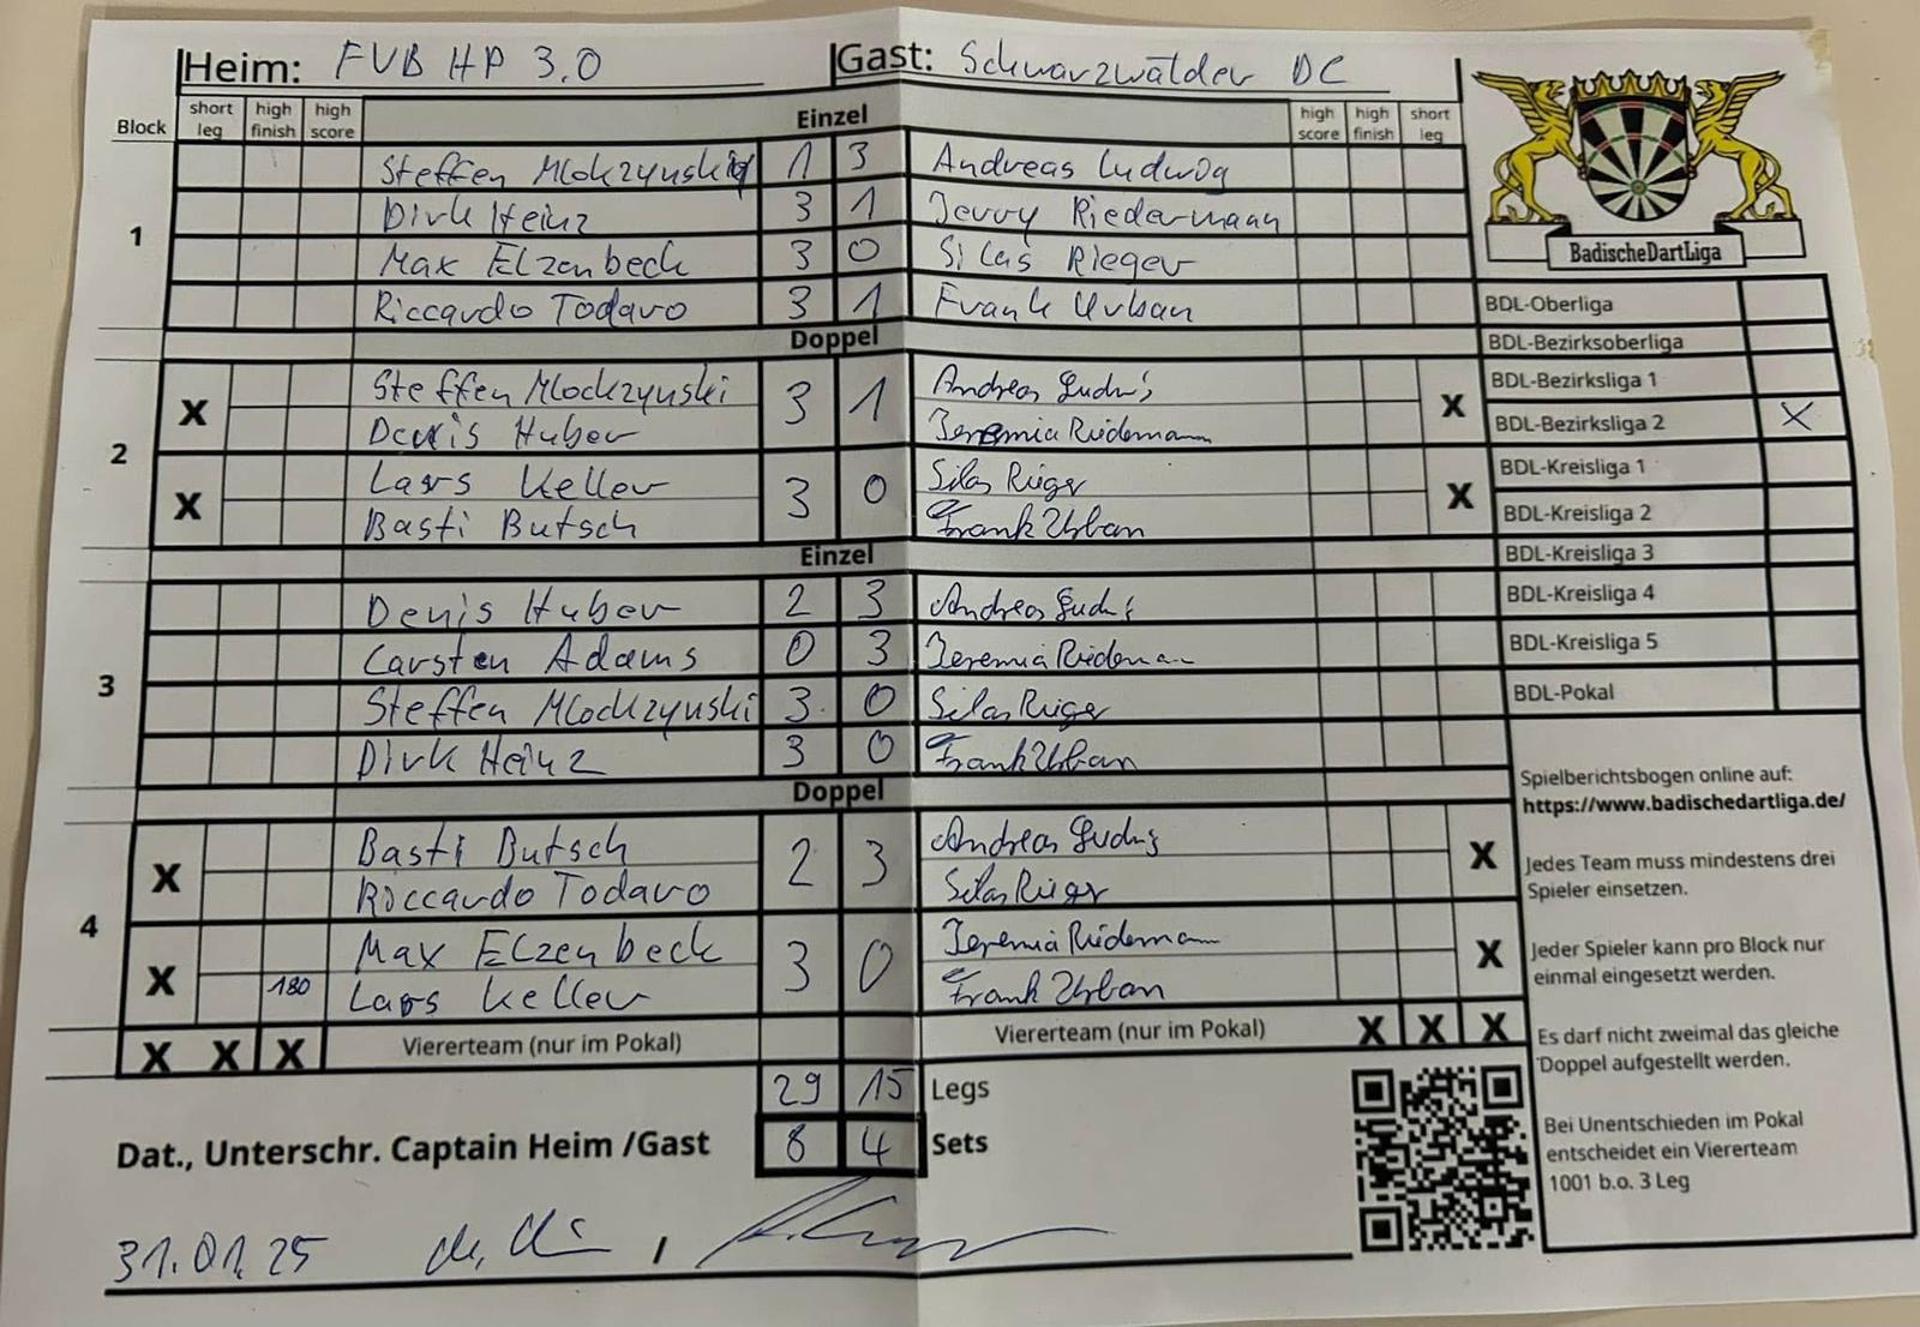 Heim: FVB HP 3.0 Gast: Schwarzwälder DC
Block short leg high finish high score Einzel high score high finish short leg
Steffen Mlokzynski 1 3 Andreas Ludwig
1 Dirk Heinz 3 1 Jerry Riedermann
Max Elzenbeck 3 0 Silas Rieger
Riccardo Todaro 3 1 Frank Urban
Doppel
2
X Steffen Mlockzynski 3 1 Andreas Ludwig X
Denis Huber Jeremia Riedemann
X Lars Keller 3 0 Silas Rieger X
Basti Butsch Frank Urban
Einzel
3
Denis Huber 2 3 Andreas Ludwig
Carsten Adams 0 3 Jeremia Riedemann
Steffen Mlockzynski 3 0 Silas Rieger
Dirk Heinz 3 0 Frank Urban
Doppel
4
X Basti Butsch 2 3 Andreas Ludwig X
Riccardo Todaro Silas Rieger
X Max Elzenbeck 3 0 Jeremia Riedemann X
180 Lars Keller Frank Urban
X X X Viererteam (nur im Pokal) Viererteam (nur im Pokal) X X X
29 15 Legs
Dat., Unterschr. Captain Heim /Gast 8 4 Sets
31.01.25 /
BadischeDartLiga
BDL-Oberliga
BDL-Bezirksoberliga
BDL-Bezirksliga 1
BDL-Bezirksliga 2 X
BDL-Kreisliga 1
BDL-Kreisliga 2
BDL-Kreisliga 3
BDL-Kreisliga 4
BDL-Kreisliga 5
BDL-Pokal
Spielberichtsbogen online auf:
https://www.badischedartliga.de/
Jedes Team muss mindestens drei
Spieler einsetzen.
Jeder Spieler kann pro Block nur
einmal eingesetzt werden.
Es darf nicht zweimal das gleiche
Doppel aufgestellt werden.
Bei Unentschieden im Pokal
entscheidet ein Viererteam
1001 b.o. 3 Leg